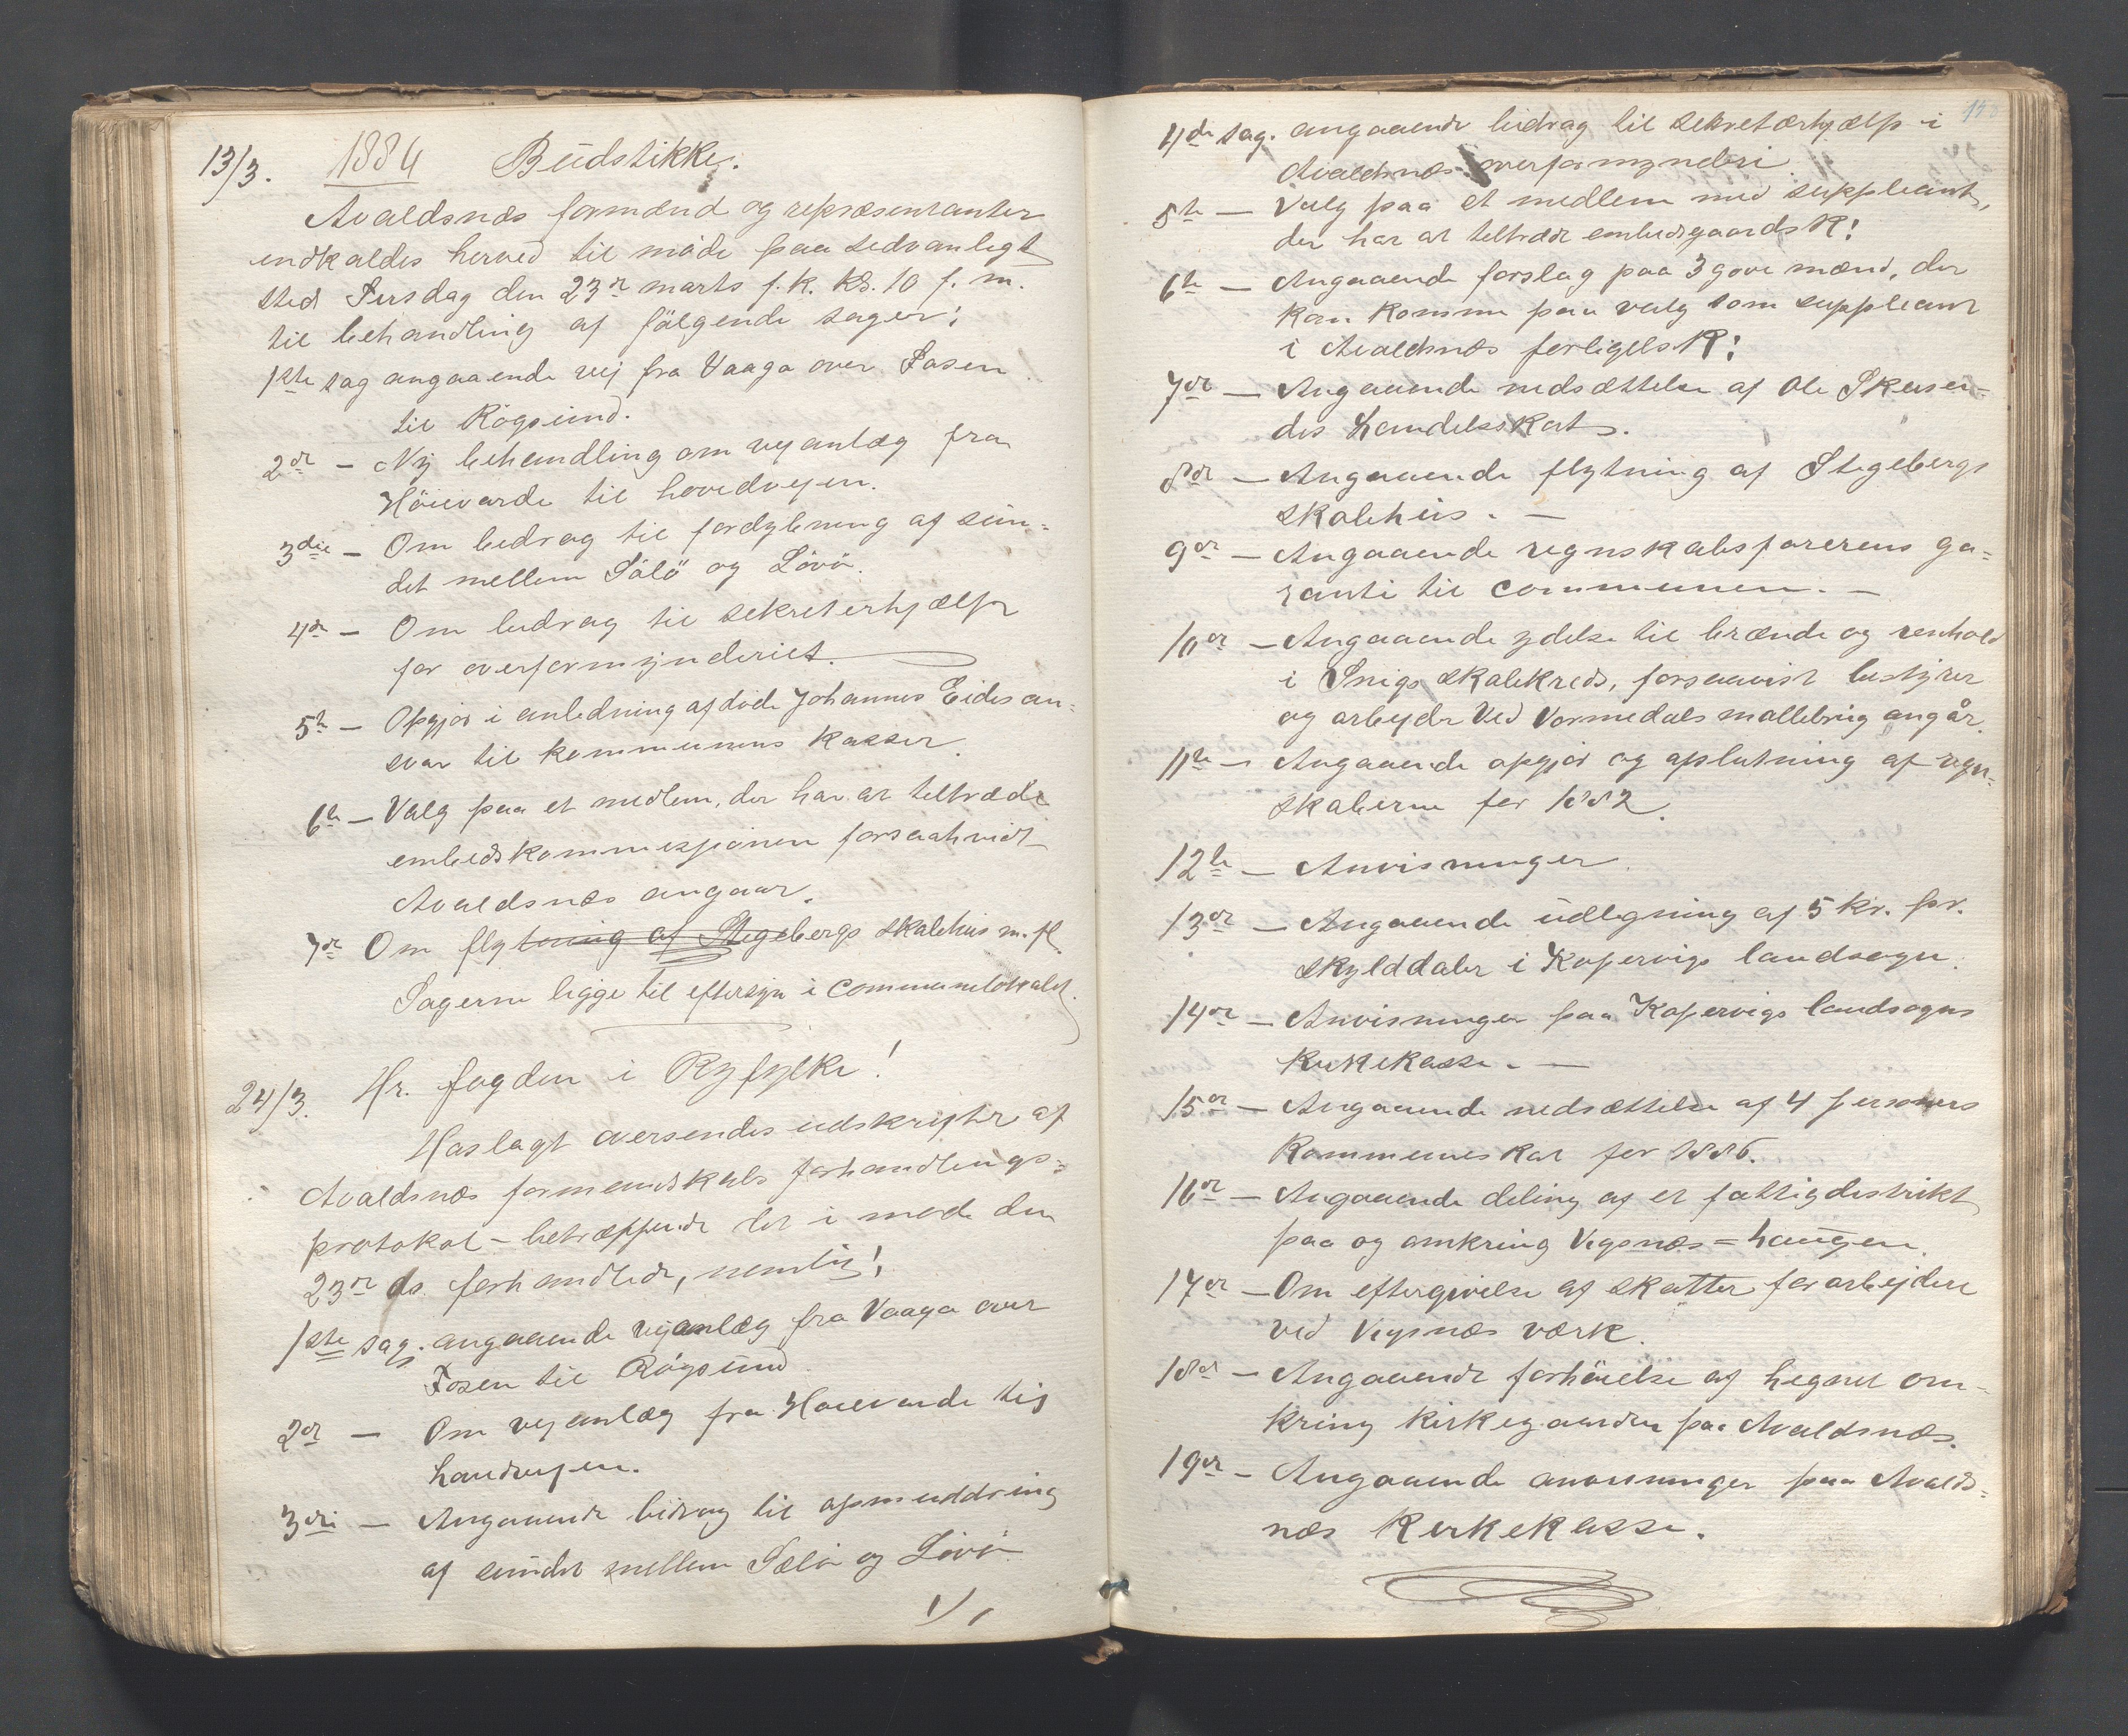 13/3. 1886 Budstikke.
Avaldsnæs formænd og repræsentanter
indkaldes herved til möde paa sedvanligt
sted Tirsdag den 23de marts f. k. kl. 10 f. m.
til behandling af fölgende sager:
1ste sag angaaende vej fra Vaaga over Fosen
til Rögsund.
2den – Ny behandling om vejanlæg fra
Höievarde til hovedvejen.
3die – Om bidrag til fordybning af sun=
det mellem Sölö og Lövö.
4de – Om bidrag til sekreterhjælp
for overformynderiet.
5te – Opgjör i anledning afdöde Johannes Eides an=
svar til kommunens kasser.
6te – Valg paa et medlem, der har at tiltræde
embedskommissjonen forsaahvidt
Avaldsnæs angaar.
7de Om flytning af Stegebergs skolehus m. fl.
Sagerne ligge til eftersyn i Communelokalet.
24/3. Hr. fogden i Ryfylke!
Hoslagt oversendes udskrifter af
Avaldsnæs formandskabs forhandlings=
protokol – betræffende det i mode den
23de ds. forhandlede, nemlig!
1ste sag. angaaende vejanlæg fra Vaaga over
Fosen til Rögsund
2den – Om vejanlæg fra Höievarde til
hovedvejen.
3die – Angaaende bidrag til opmuddring
af sundet mellem Sælö og Lövö
4de sag. angaaende bidrag til sekretærhjælp i
Avaldsnæs overformynderi
5te – Valg paa et medlem med suppleant,
der har at tiltræde embedsgaardsK:
6te – Angaaende forslag paa 3 gove mænd, der
kan komme paa valg som suppleant
i Avaldsnæs forligelsK:
7de – Angaaende nedsættelse af Ole Skeisen=
des handelsskat.
8de – Angaaende flytning af Stegebergs
skolehus. –
9de – Angaaende regnskabsförerens ga=
ranti til communen. –
10de – Angaaende ydelse til brænde og renhold
i Snigs skolekreds, forsaavist bestyrer
og arbejder ved Vormedals mallebrug angår.
11te – Angaaende opgjör og afslutning af regn=
skaberne for 1882.
12te – Anvisninger.
13de – Angaaende udlegning af 5 kr. pr.
skylddaler i Kopervigs landsogn.
14de – Anvisninger paa Kopervigs landsogns
kirkekasse. –
15de – Angaaende nedsættelse af 4 personers
kommuneskat for 1886.
16de – Angaaende deling af et fattigdistrikt
paa og omkring Vigsnæs=haugen.
17de – Om eftergivelse af skatter for arbejdere
ved Vigsnæs værk.
18de – Angaaende forhöielse af hegnet om=
kring kirkegaarden paa Avaldsnæs.
19de – Angaaende anvisninger paa Avalds=
næs Kirkekasse.